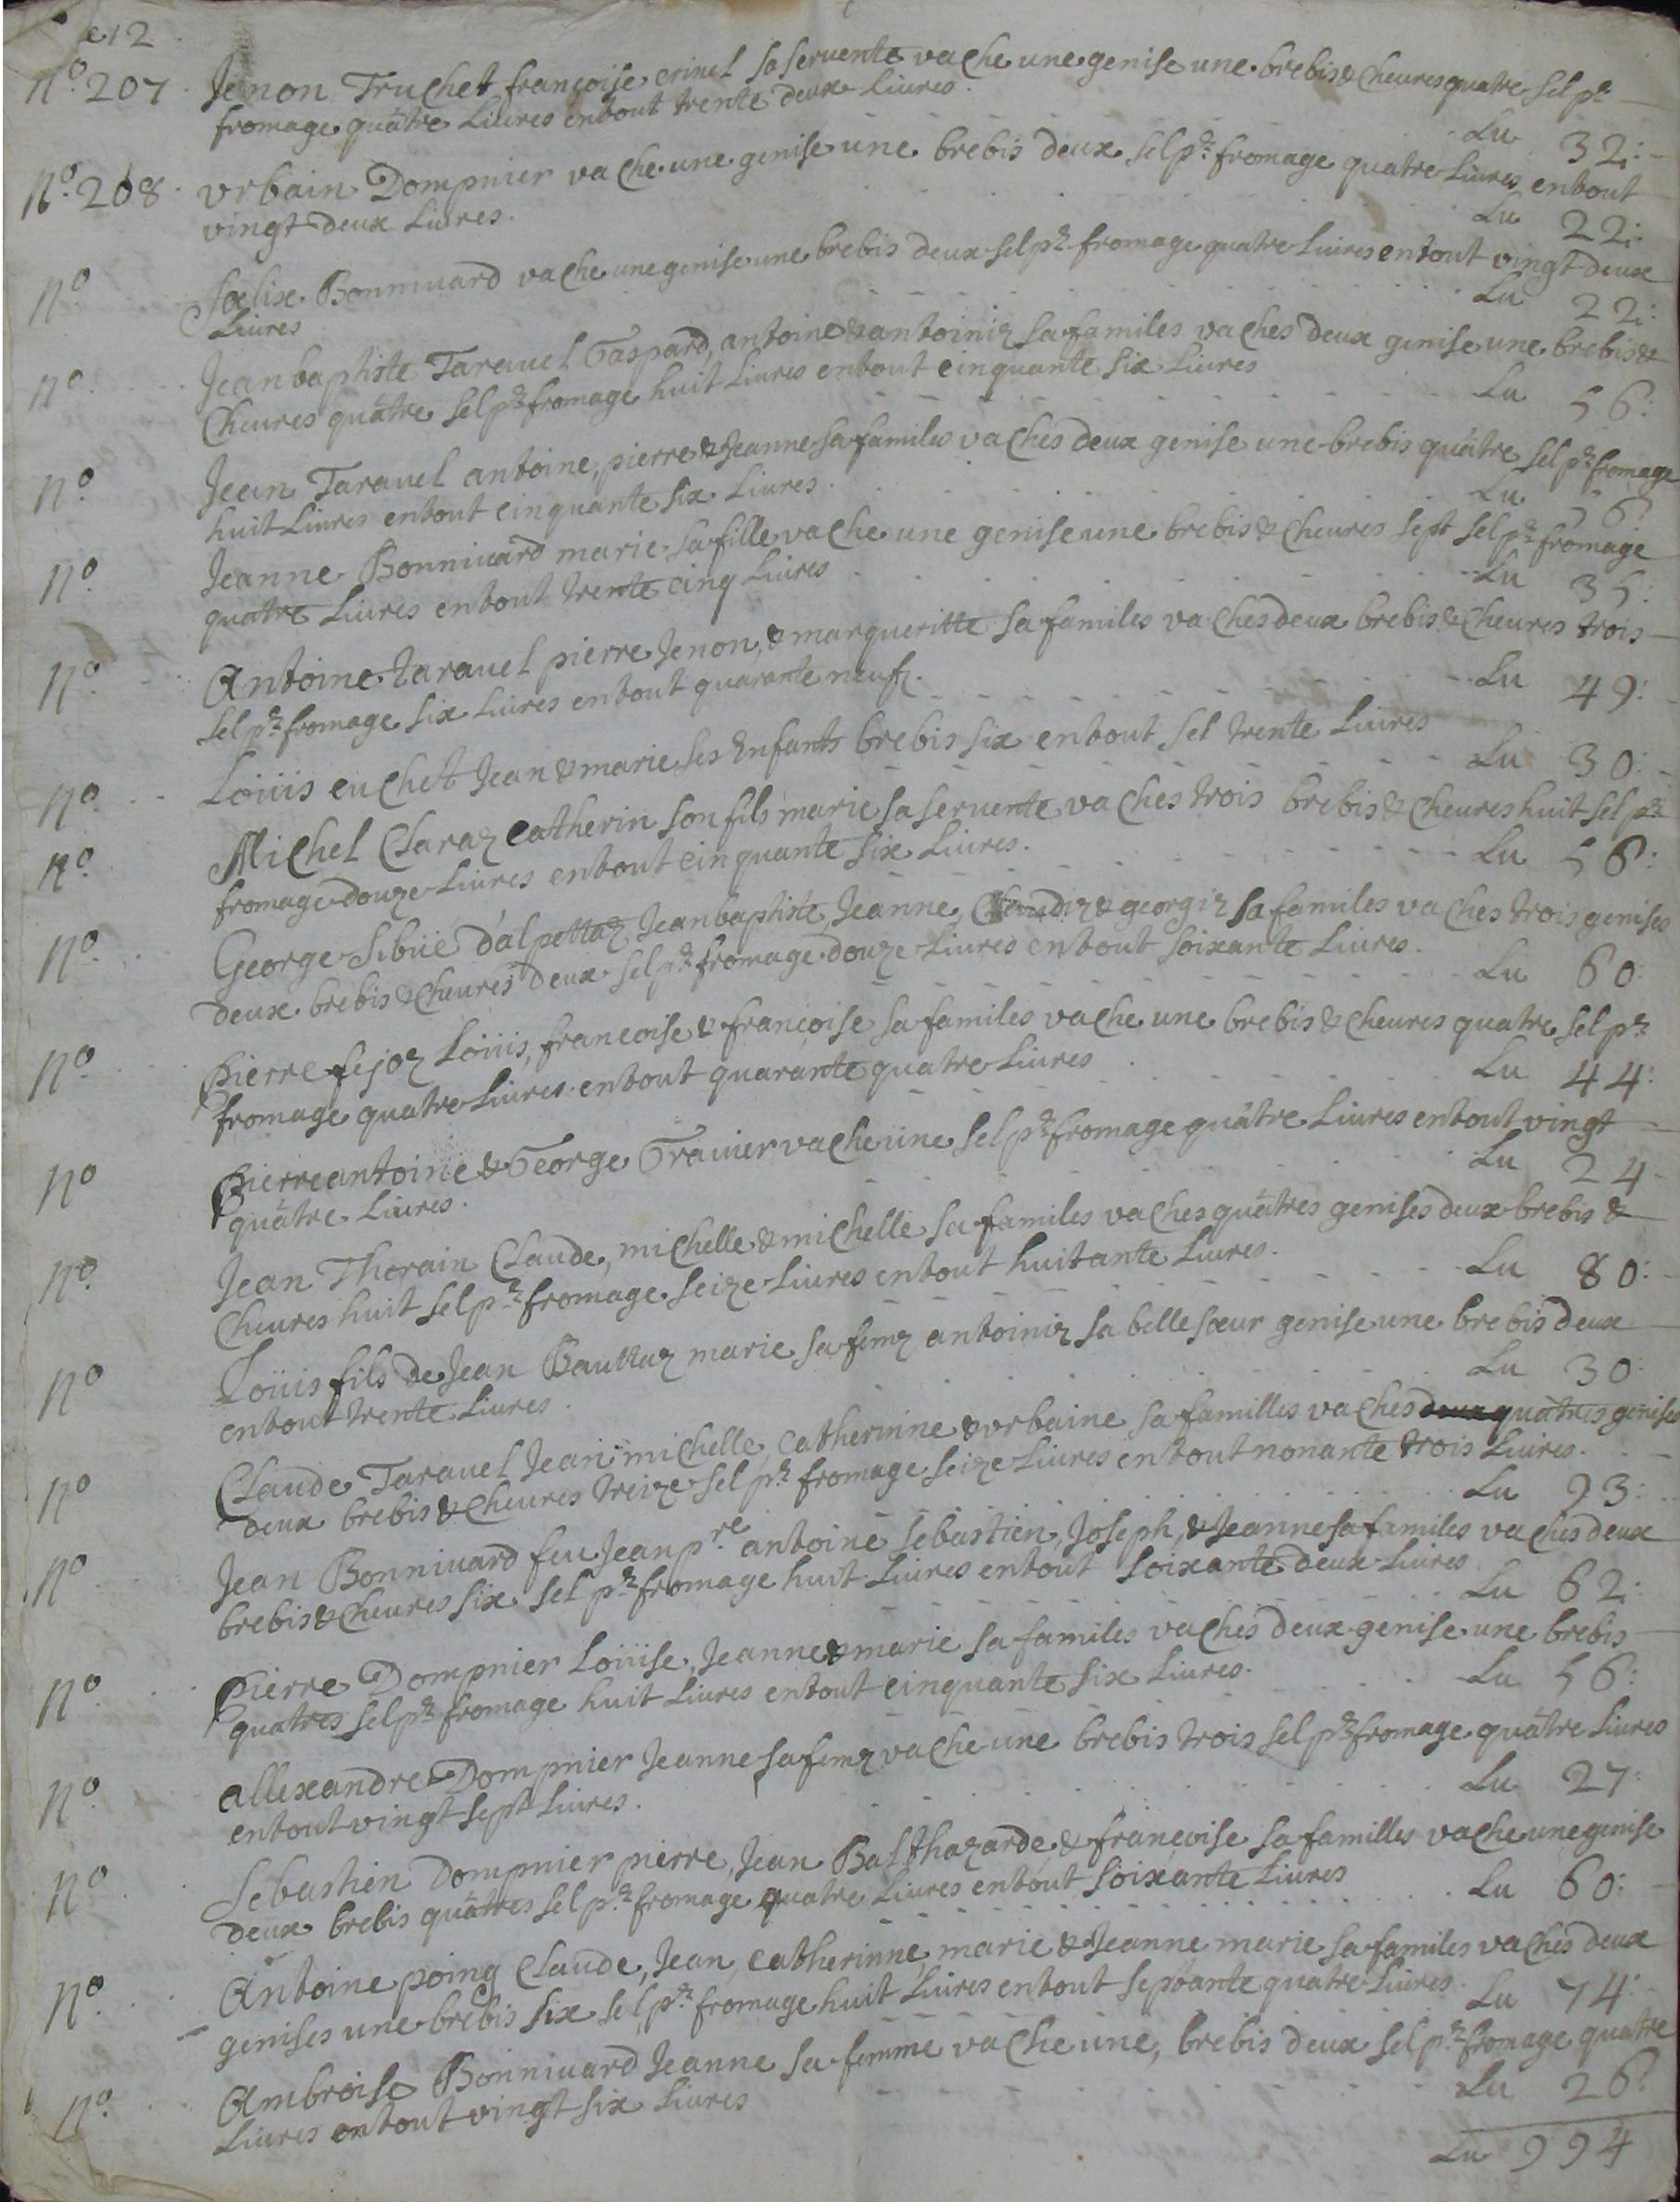 12
N.º 207. Jenon Truchet françoise crinel sa seruente vache une genise une brebis & cheures quatre sel pr
fromage quätre Liures entout trente deux Liures. Lu 32:
N.º 208. vrbain Dompnier vache une genise une brebis deux sel pr fromage quatre Liures entout
vingt deux Liures. Lu 22:
Nº fœlix Bonniuard vache une genise une brebis deux sel pr fromage quatre Liures entout vingt deux
Liures Lu 22:
Nº Jean baptiste Tarauel Gaspard, antoine & antoiniz sa familes vaches deux genise une brebis &
Cheures quätre sel pr fromage huit Liures entout cinquante six Liures Lu 56:
Nº Jean Tarauel antoine, pierre & Jeanne sa familes vaches deux genise une brebis quätre sel pr fromage
huit Liures entout cinquante six Liures. Lu 56
Nº Jeanne Bonniuard marie sa fille vache une genise une brebis & cheures sept sel pr fromage
quatre Liures entout trente cinq Liures Lu 35:
Nº Antoine Tarauel pierre Jenon, & margueritte sa familes vaches deux brebis & Cheures trois
sel pr fromage six Liures entout quarante neufz. Lu 49:
Nº Loüis cuchet Jean & marie ses Enfants brebis six entout sel trente Liures Lu 30:
Nº Michel Claraz Catherin son fils marie sa seruente vaches trois brebis & cheures huit sel pr
fromage douze Liures entout cinquante six Liures. Lu 56:
Nº George Sibüe d'alpettaz Jean baptiste, Jeanne, Claudiz & georgiz sa familes vaches trois genises
deux brebis & cheures deux sel pr fromage douze Liures entout soixante Liures. Lu 60:
Nº Pierre fejoz Loüis, francoise & françoise sa familes vache une brebis & cheures quatre sel pr
fromage quatre Liures entout quarante quatre Liures Lu 44:
Nº Pierre antoine & George Grauier vache üne sel pr fromage quätre Liures entout vingt
quätre Liures. Lu 24
Nº Jean Thorain Claude, michelle & michelle sa familes vaches quätres genises deux brebis &
Cheures huit sel pr fromage seize Liures entout huitante Liures. Lu 80:
Nº Loüis fils de Jean Bauttaz marie sa femz antoiniz sa belle sœur genise une brebis deux
entout trente Liures. Lu 30:
Nº Claude Tarauel Jean michelle, Catherinne & vrbaine sa familles vaches deux quätres genises
deux brebis & Cheures treize sel pr fromage seize Liures entout nonante trois Liures. Lu 93:
Nº Jean Bonniuard feu Jean pre antoine sebastien, Joseph, & Jeanne sa familes vaches deux
brebis & Cheures six sel pr fromage huit Liures entout soixante deux Liures Lu 62:
Nº Pierre Dompnier Loüise, Jeanne & marie sa familes vaches deux genise une brebis
quatres sel pr fromage huit Liures entout cinquante six Liures. Lu 56:
Nº allexandre Dompnier Jeanne sa femz vache une brebis trois sel pr fromage quätre Liures
entout vingt sept Liures. Lu 27:
Nº Sebastien Dompnier pierre, Jean Balthazarde & francoise sa familles vache une genise
deux brebis quätres sel pr fromage quatre Liures entout soixante Liures Lu 60:
Nº Antoine poing Claude, Jean, Catherinne, marie & Jeanne marie sa familes vaches deux
genises une brebis six sel pr fromage huit Liures entout septante quatre Liures Lu 74:
Nº Ambroise Bonniuard Jeanne sa femme vache une, brebis deux sel pr fromage quatre
Liures entout vingt six Liures Lu 26:
Lu 994